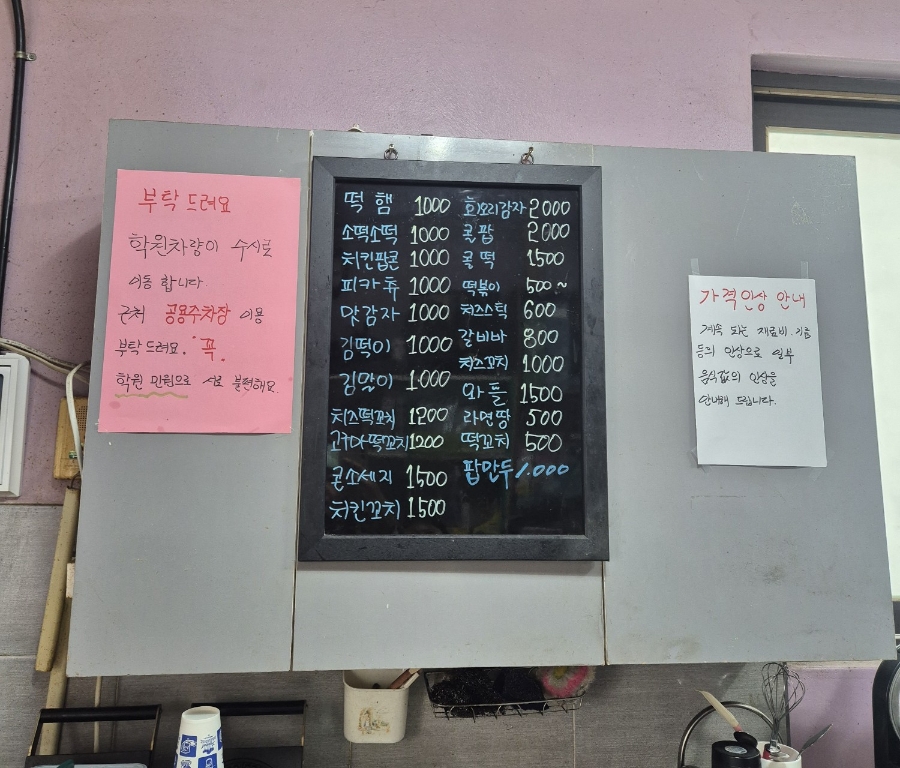 부탁 드려요
학원차량이 수시로
이동 합니다
근처 공용주차장 이용
부탁드려요. 꼭.
학원 민원으로 서로 불편해요.
떡 햄 1000
소떡소떡 1000
치킨팝콘 1000
피카츄 1000
맛감자 1000
김떡이 1000
김말이 1000
치즈떡꼬치 1200
고구마떡꼬치 1200
콘소세지 1500
치킨꼬치 1500
회오리감자 2000
콜팝 2000
콜떡 1500
떡볶이 500~
치즈스틱 600
갈비바 800
치즈꼬치 1000
와플 1500
라면땅 500
떡꼬치 500
팝만두 1.000
가격인상 안내
계속 되는 재료비.기름
등의 인상으로 일부
음식값의 인상을
안내해 드립니다.